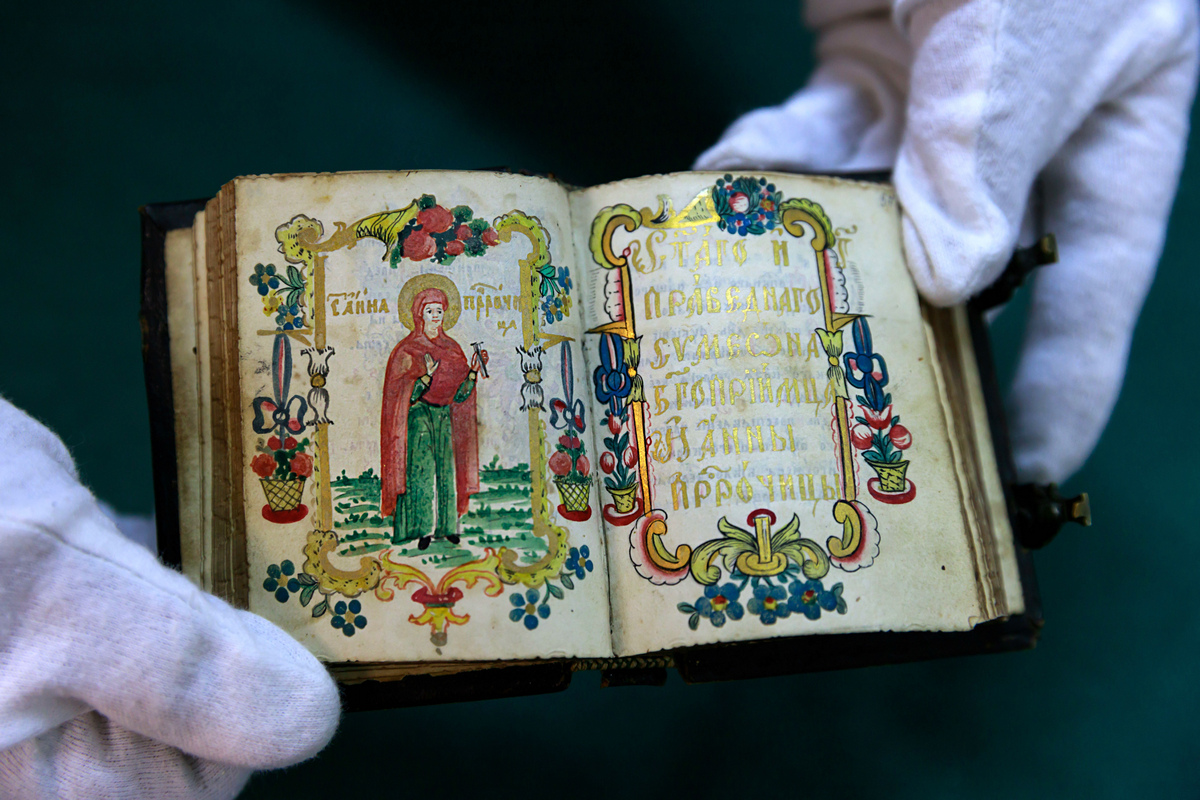 СТ҃ АННА ПРР҇ОЧИ
ЦА
СТ҃А́ГО И҆
ПРА́ВЕДНАГО
СУМЕѠНА
БГ҃ОПРІИ́МЦА
И҆ А҆́ННЫ
ПРР҇О́ЧИЦЫ